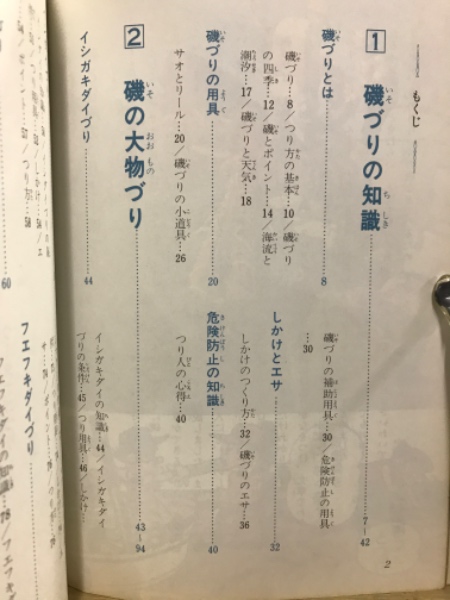 もくじ
1 磯づりの知識 7〜42
磯づりとは 8
磯づり…8／つり方の基本…10／磯づり
の四季…12／磯とポイント…14／海流と
潮汐…17／磯づりと天気…18
磯づりの用具 20
サオとリール…20／磯づりの小道具…26
磯づりの補助用具…30／危険防止の用具
…30
しかけとエサ 32
しかけのつくり方…32／磯づりのエサ…36
危険防止の知識 40
つり人の心得…40
2 磯の大物づり 43〜94
イシガキダイづり 44
イシガキダイの知識…44／イシガキダイ
づりの条件…45／つり用具…46／しかけ…
フエフキダイづり
60
2